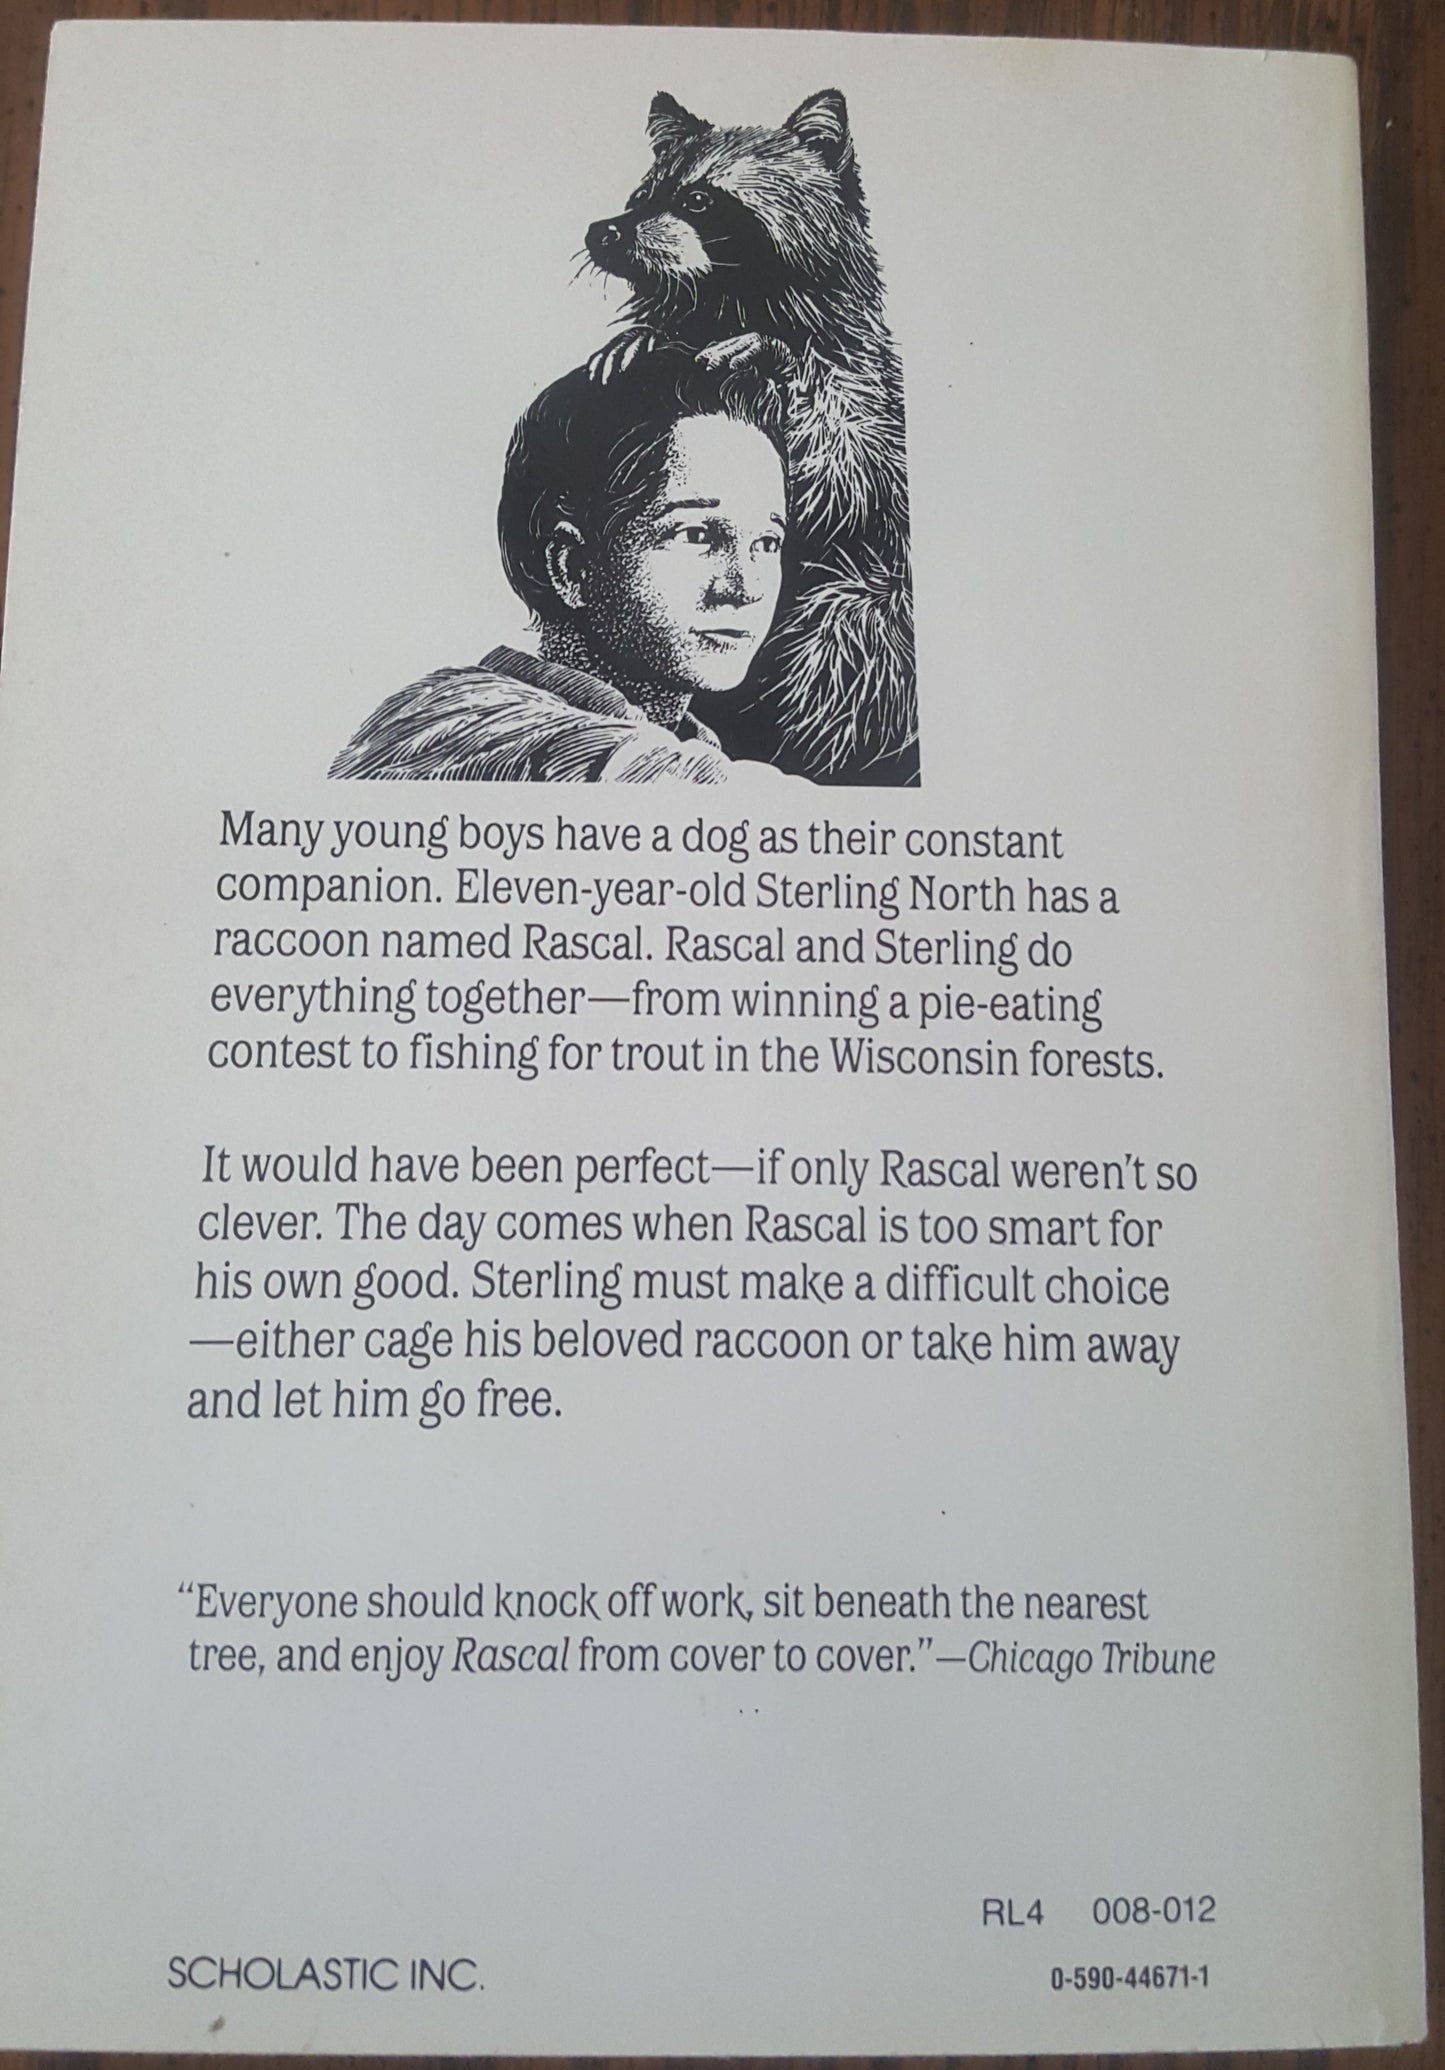 Many young boys have a dog as their constant
companion. Eleven-year-old Sterling North has a
raccoon named Rascal. Rascal and Sterling do
everything together—from winning a pie-eating
contest to fishing for trout in the Wisconsin forests.
It would have been perfect—if only Rascal weren't so
clever. The day comes when Rascal is too smart for
his own good. Sterling must make a difficult choice
—either cage his beloved raccoon or take him away
and let him go free.
“Everyone should knock off work, sit beneath the nearest
tree, and enjoy Rascal from cover to cover.”—Chicago Tribune
RL4 008-012
SCHOLASTIC INC.
0-590-44671-1